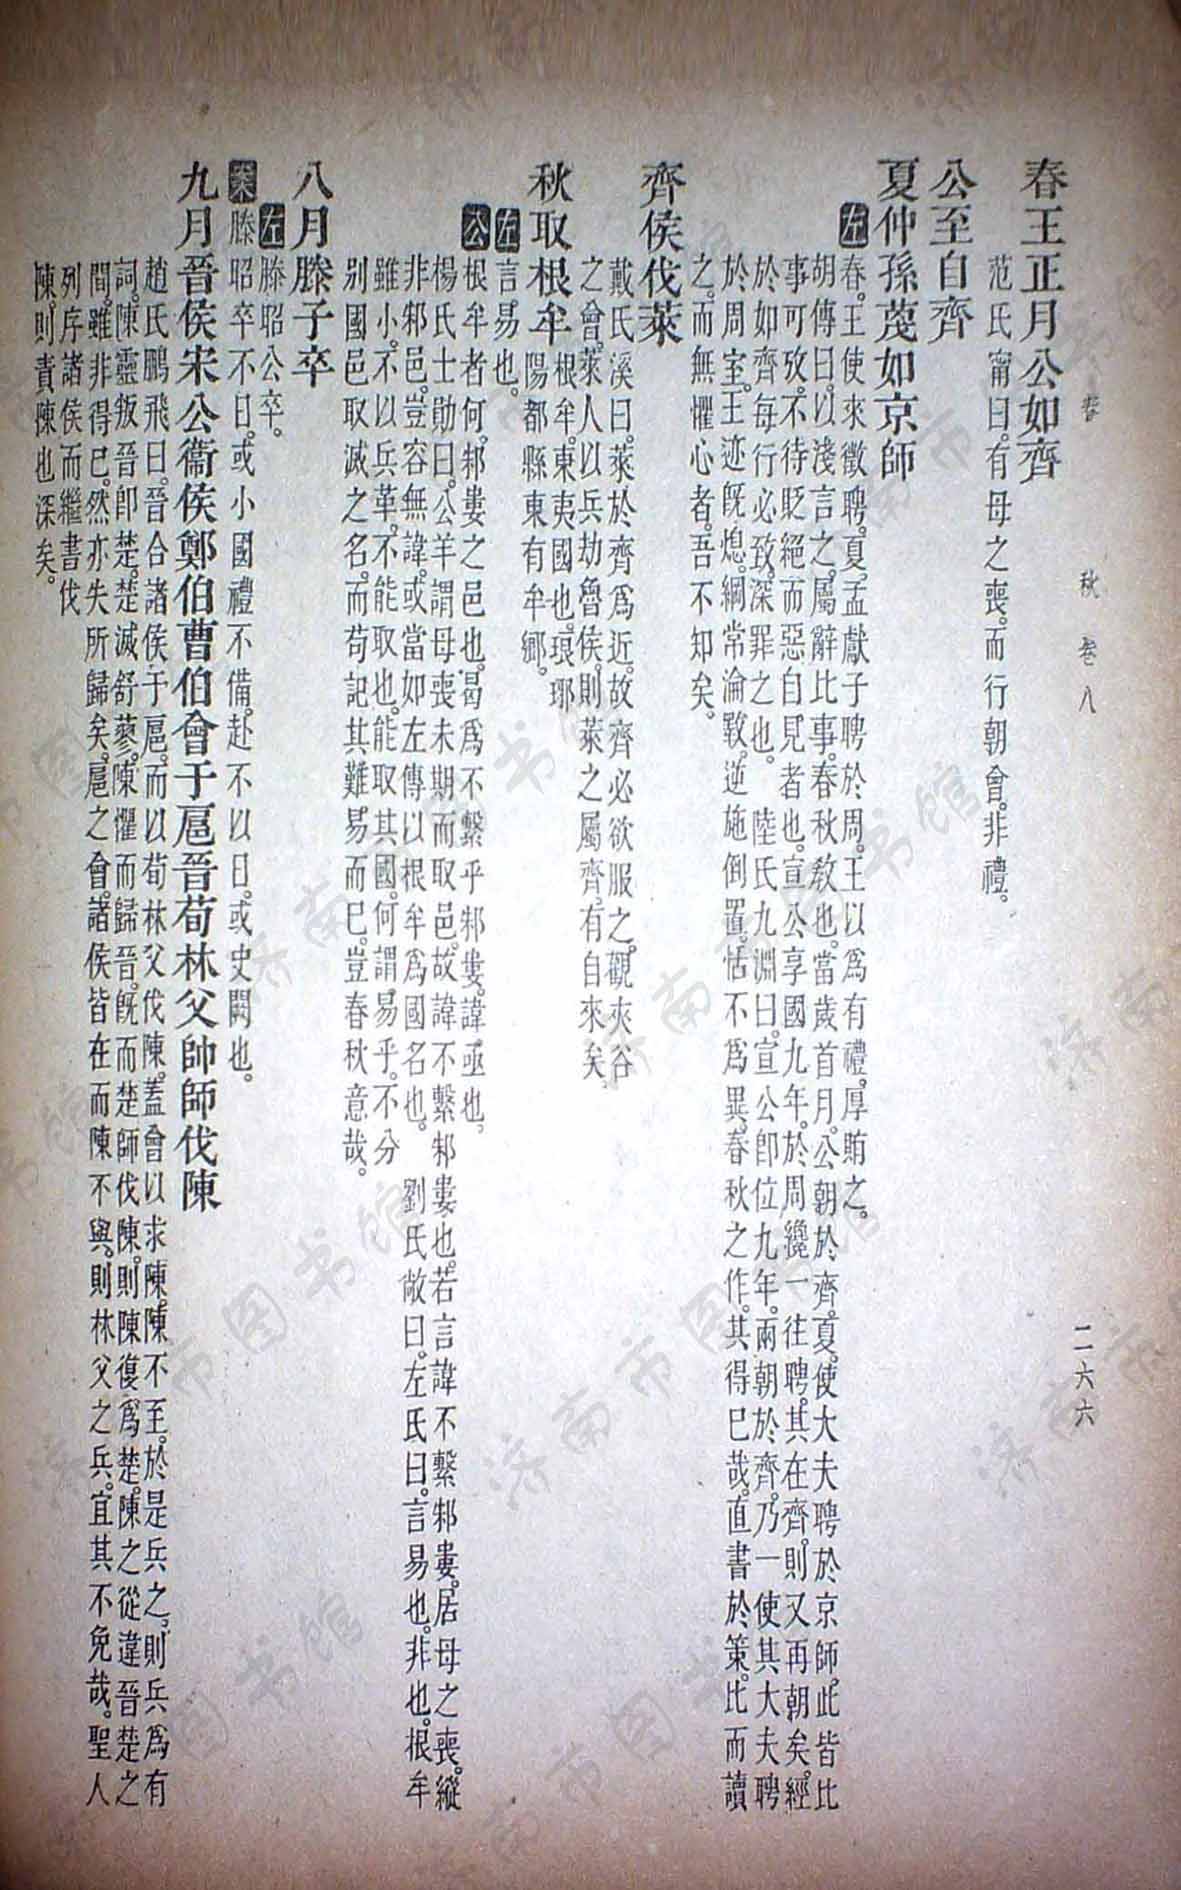 春　秋　卷八　二六六
春王正月公如齊
范氏甯曰。有母之喪。而行朝會。非禮。
公至自齊
夏仲孫蔑如京師
左　春。王使來徵聘。夏。孟獻子聘於周。王以爲有禮。厚賄之。
胡傳曰。以淺言之。屬辭比事。春秋敎也。當歲首月。公朝於齊。夏。使大夫聘於京師。此皆比
事可攷。不待貶絕而惡自見者也。宣公享國九年。於周纔一往聘。其在齊。則又再朝矣。經
於如齊。每行必致。深罪之也。　陸氏九淵曰。宣公卽位九年。兩朝於齊。乃一使其大夫聘
於周室。王迹旣熄。綱常淪斁。逆施倒置。恬不爲異。春秋之作。其得已哉。直書於策。比而讀
之。而無懼心者。吾不知矣。
齊侯伐萊
戴氏溪曰。萊於齊爲近。故齊必欲服之。觀夾谷
之會。萊人以兵劫魯侯。則萊之屬齊。有自來矣。
秋取根牟　根牟。東夷國也。琅邪
陽都縣東有牟鄉。
左　言易也。
公　根牟者何。邾婁之邑也。曷爲不繫乎邾婁。諱亟也。
楊氏士勛曰。公羊謂母喪未期而取邑。故諱不繫邾婁也。若言諱不繫邾婁。居母之喪。縱
非邾邑。豈容無諱。或當如左傳以根牟爲國名也。　劉氏敞曰。左氏曰。言易也。非也。根牟
雖小。不以兵革。不能取也。能取其國。何謂易乎。不分
别國邑取滅之名。而苟記其難易而已。豈春秋意哉。
八月滕子卒
左　滕昭公卒。
案　滕昭卒不日。或小國禮不備。赴不以日。或史闕也。
九月晉侯宋公衞侯鄭伯曹伯會于扈晉荀林父帥師伐陳
趙氏鵬飛曰。晉合諸侯于扈。而以荀林父伐陳。蓋會以求陳。陳不至。於是兵之。則兵爲有
詞。陳靈叛晉卽楚。楚滅舒蓼。陳懼而歸晉。旣而楚師伐陳。則陳復爲楚。陳之從違晉楚之
間。雖非得已。然亦失所歸矣。扈之會。諸侯皆在而陳不與。則林父之兵。宜其不免哉。聖人
列序諸侯而繼書伐
陳。則責陳也深矣。